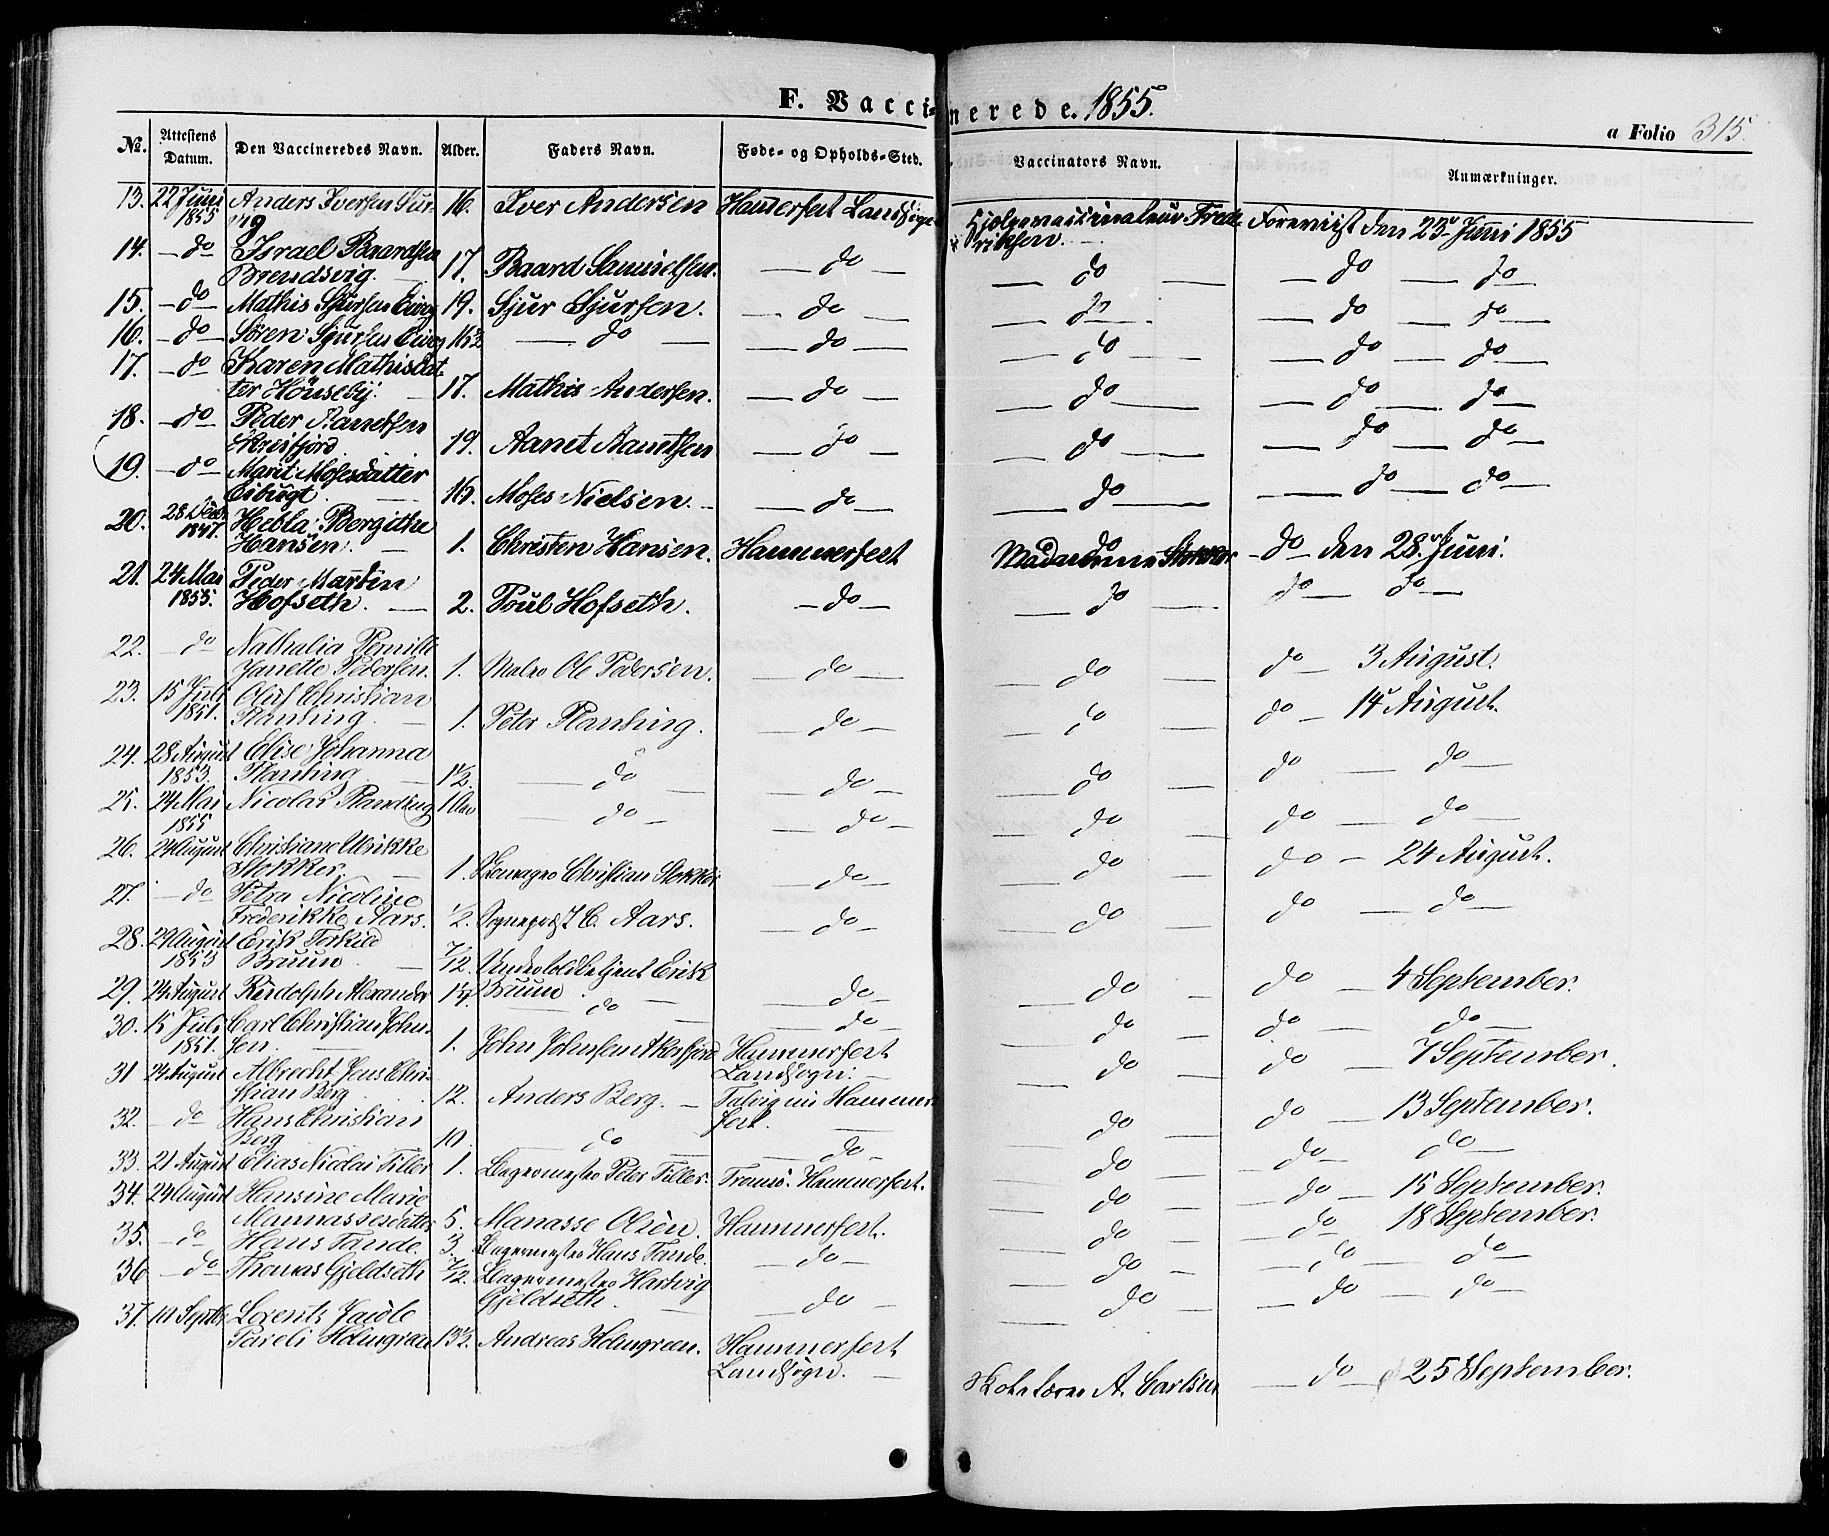 F. Vaccinerede. 1855.
a Folio 315.
No. Attestens Datum. Den Vaccineredes Navn. Alder. Faders Navn. Føde- og Opholds-Sted. Vaccinators Navn. Anmærkninger.
13. 22 Juni 1855 Anders Iversen 16. Iver Andersen Hammerfest Landsogn Hjelpevaccinateur Frederiksen. Foreviist den 23 Juni 1855
14. — do Israel Baardsen Brendsvig. 17. Baard Samuelsen. — do — — do — do — do —
15. — do — Mathis Sjursen 19. Sjur Sjursen. — do — — do — — do — do —
16. — do — Sören Sjursen 16½ — do — — do — — do — — do — do —
17. — do Karen Mathisdatter Hönseby. 17. Mathis Andersen. — do — — do — — do — do —
18. — do Peder Aanetsen 19. Aanet Aanetsen — do — — do — — do — do —
19. — do — Marit Mosesdatter 16. Moses Nielsen. — do — — do — — do — do —
20. 28 1847. Hebla Bergithe Hansen. 1. Christen Hansen. Hammerfest Madam Stokker do — do den 28 Juni.
21. 24 Mai 1855. Peder Martin Hofseth. 2. Poul Hofseth. — do — — do — do — do —
22. — do Nathalia Pernille Janette Pedersen. 1. Ole Pedersen. — do — — do — do — 3 August.
23. 15 Juli 1851. Oluf Christian Planting. 1. Peter Planting. — do — — do — do — 14 August.
24. 28 August 1853. Elise Johanna Planting 1½. — do — — do — — do — do — do —
25. 24 Mai 1855 Nicolai Planting — do — — do — — do — do — do —
26. 24 August Christiane Ulrikke Stokker. 1. Christian Stokker — do — — do — do — 24 August.
27. — do Petra Nicoline Frederikke Aars. ½. Sogneprest I. C. Aars. — do — — do — do — do —
28. 29 August 1853 Erik Torkild Bruun 7/12. Undertoldbetjent Erik Bruun. — do — — do — do — 4 September.
29. 24 August Rudolph Alexander — do — — do — — do — do — do —
30. 15 Juli 1851. Carl Christian Johnsen. 1. John Johnsen Akerfjord Hammerfest Landsogn. — do — do — 7 September.
31 24 August Albrecht Jens Christian Berg 12. Anders Berg. — Talvig nu Hammerfest. — do — do — 13 September.
32. — do Hans Christian Berg 10. do — do — — do — do — do —
33. 21 August Elias Nicolai Tiller 1. Bagermester Peter Tiller. Tromsö. Hammerfest. — do — do — 15 September.
34. 24 August Hansine Marie Mannassesdatter 5. Manasse Olsen. Hammerfest. — do — do — 18 September.
35. — do Hans Tande. 3. Bagermester Hans Tande. — do — — do — — do — do —
36 — do Thomas Gjeldseth 7/12. Bagermester Hartvig Gjeldseth. — do — — do — — do — do —
37. 10 Septbr. Lorents Jacob Pareli Holmgreen 13½. Andreas Holmgreen. Hammerfest Landsogn. — A. Carlsen — do — 25 September.